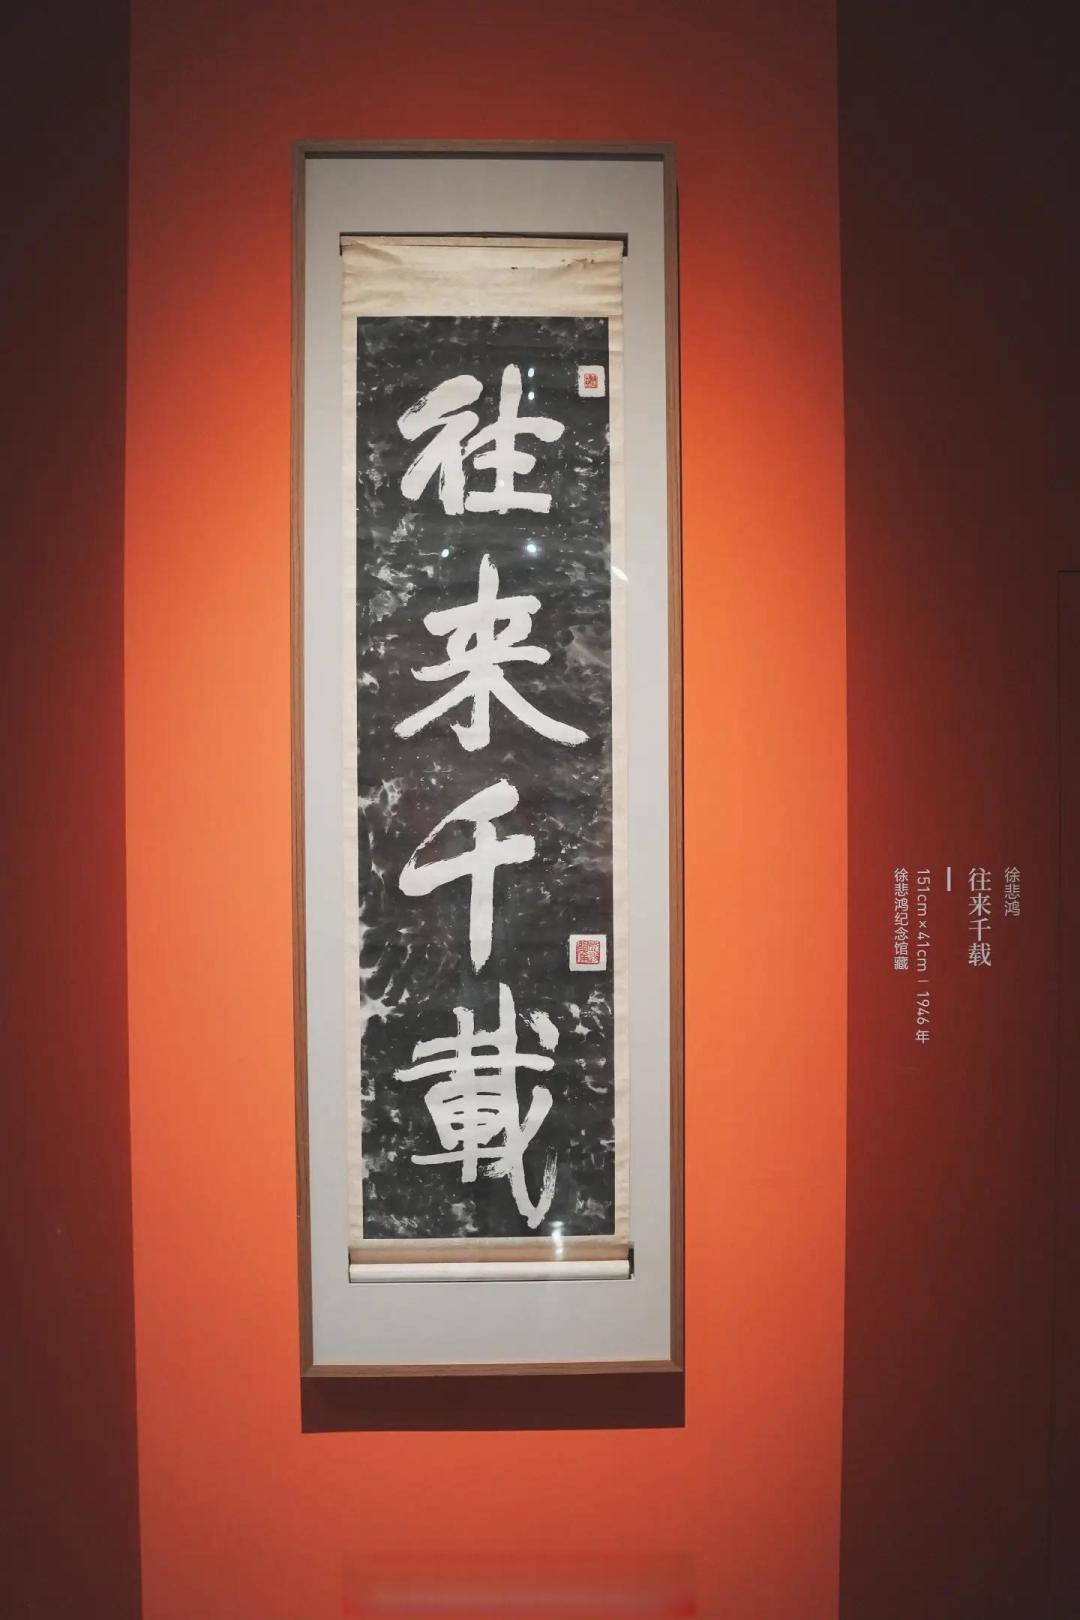 往来千載
徐悲鸿
往来千载
151cm×41cm | 1946 年
徐悲鸿纪念馆藏